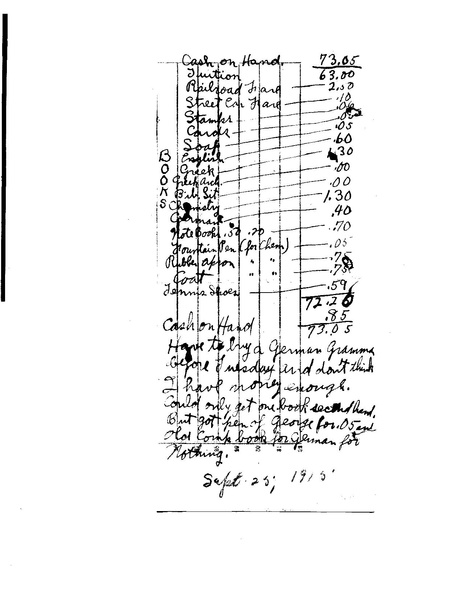 Cash on Hand. 73.05
Tuition 63.00
Railroad Fare 2.50
Street Car Fare .10
Stamps
Cards .05
Soap .05
BOOKS
English .60
Greek 1.30
Greek Arch. .00
Bib. Lit .00
Chemistry 1.30
German .40
Note Books .50 .20 .70
Fountain Pen (for Chem) .05
Rubber apron " " .75
Coat " " .75
Tennis Shoes .59
72.20
Cash on Hand .85
73.05
Have to buy a German Grammar
before Tuesday and don't think
I have money enough.
Could only get one book second hand.
But got pen of George for .05 and
Comp book for German for
Nothing.
Sept. 25, 1915